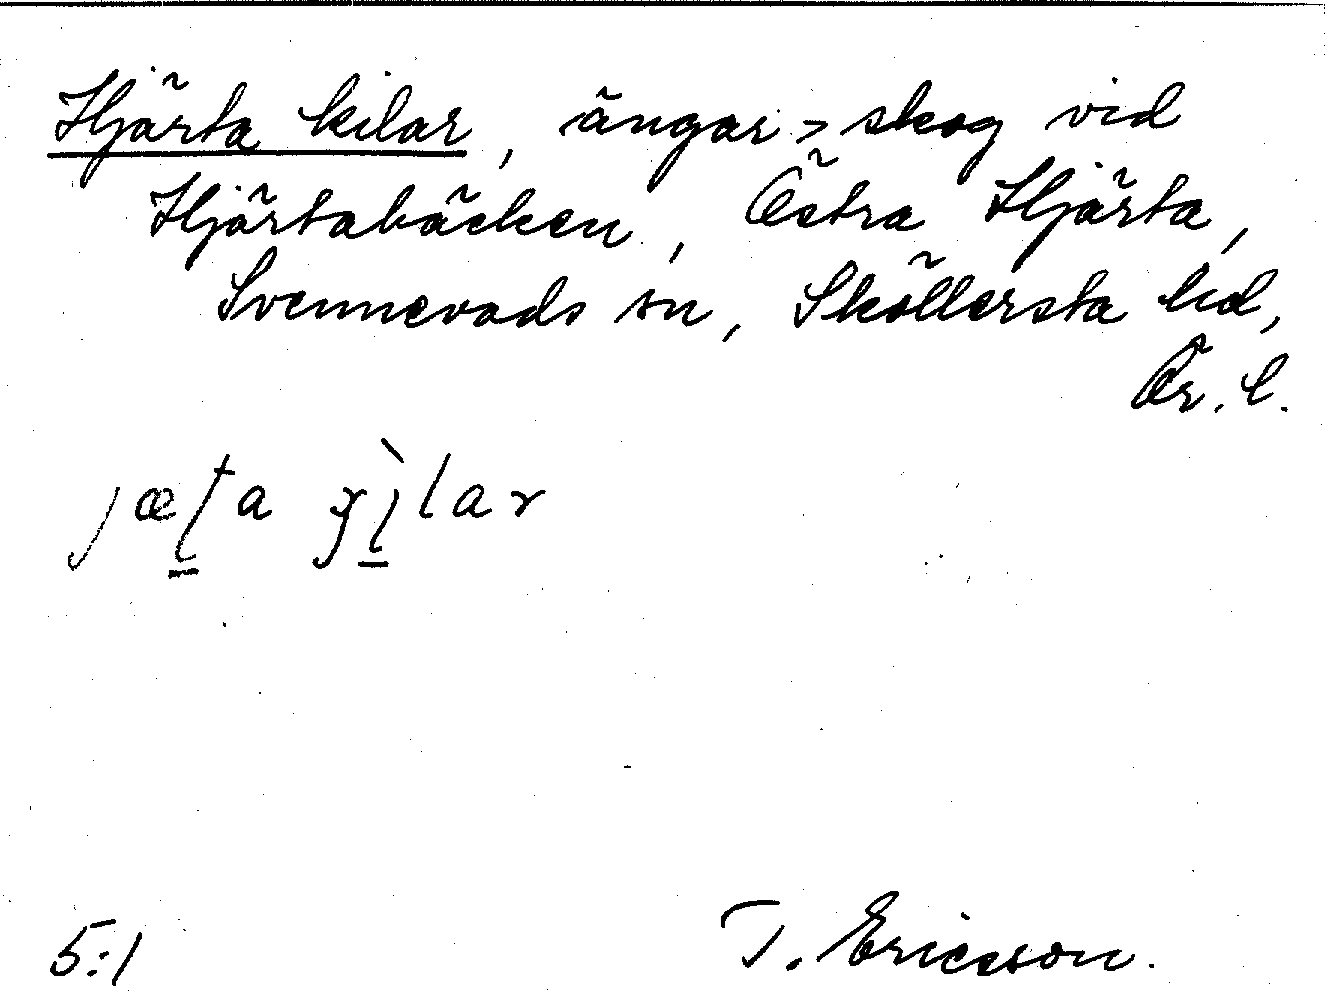 Hjärta kilar, ängar > skog vid
Hjärtabäcken, Östra Hjärta,
Svennevads sn, Sköllersta hd,
Ör. l.
jæta kìlar
5:1
T. Ericsson.